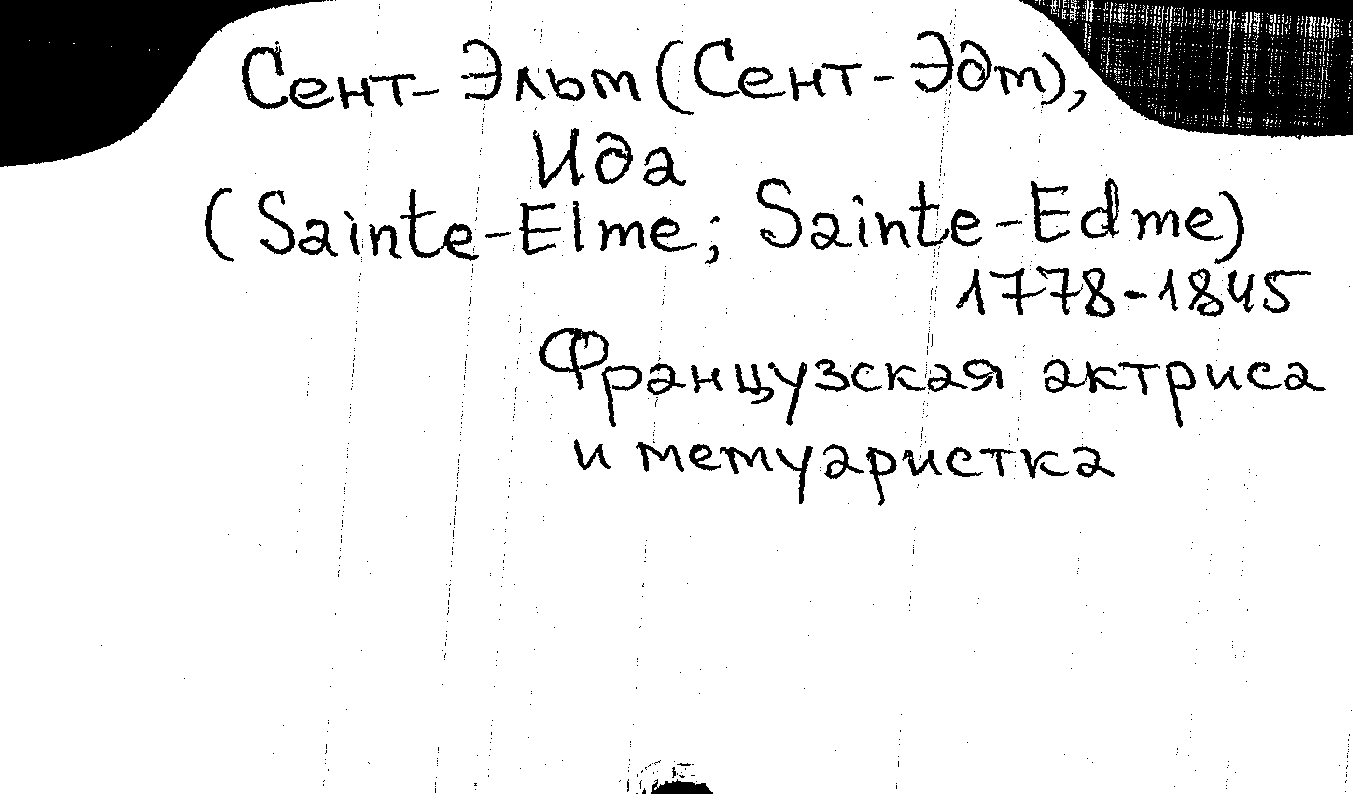 Сент-Эльм (Сент-Эдм),
Ида
(Sainte-Elme; Sainte-Edme)
1778-1845
Французская актриса
и мемуаристка